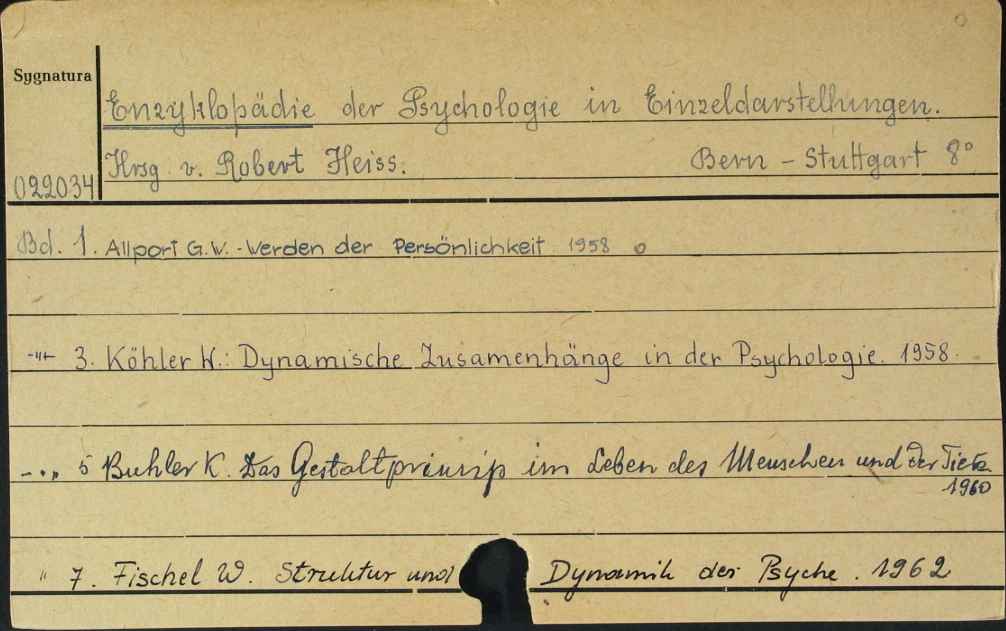 Sygnatura
Enzyklopädie der Psychologie in Einzeldarstellungen.
Hrsg v. Robert Heiss. Bern - Stuttgart 8°
022034
Bd. 1. Allport G.W. - Werden der Persönlichkeit 1958 o
-"- 3. Köhler W.: Dynamische Zusamenhänge in der Psychologie. 1958.
-"- 5 Buhler K. Das Gestaltprinsip im Leben des Menschen und der Tiere
1960
" 7. Fischel W. Struktur und Dynamik der Psyche. 1962